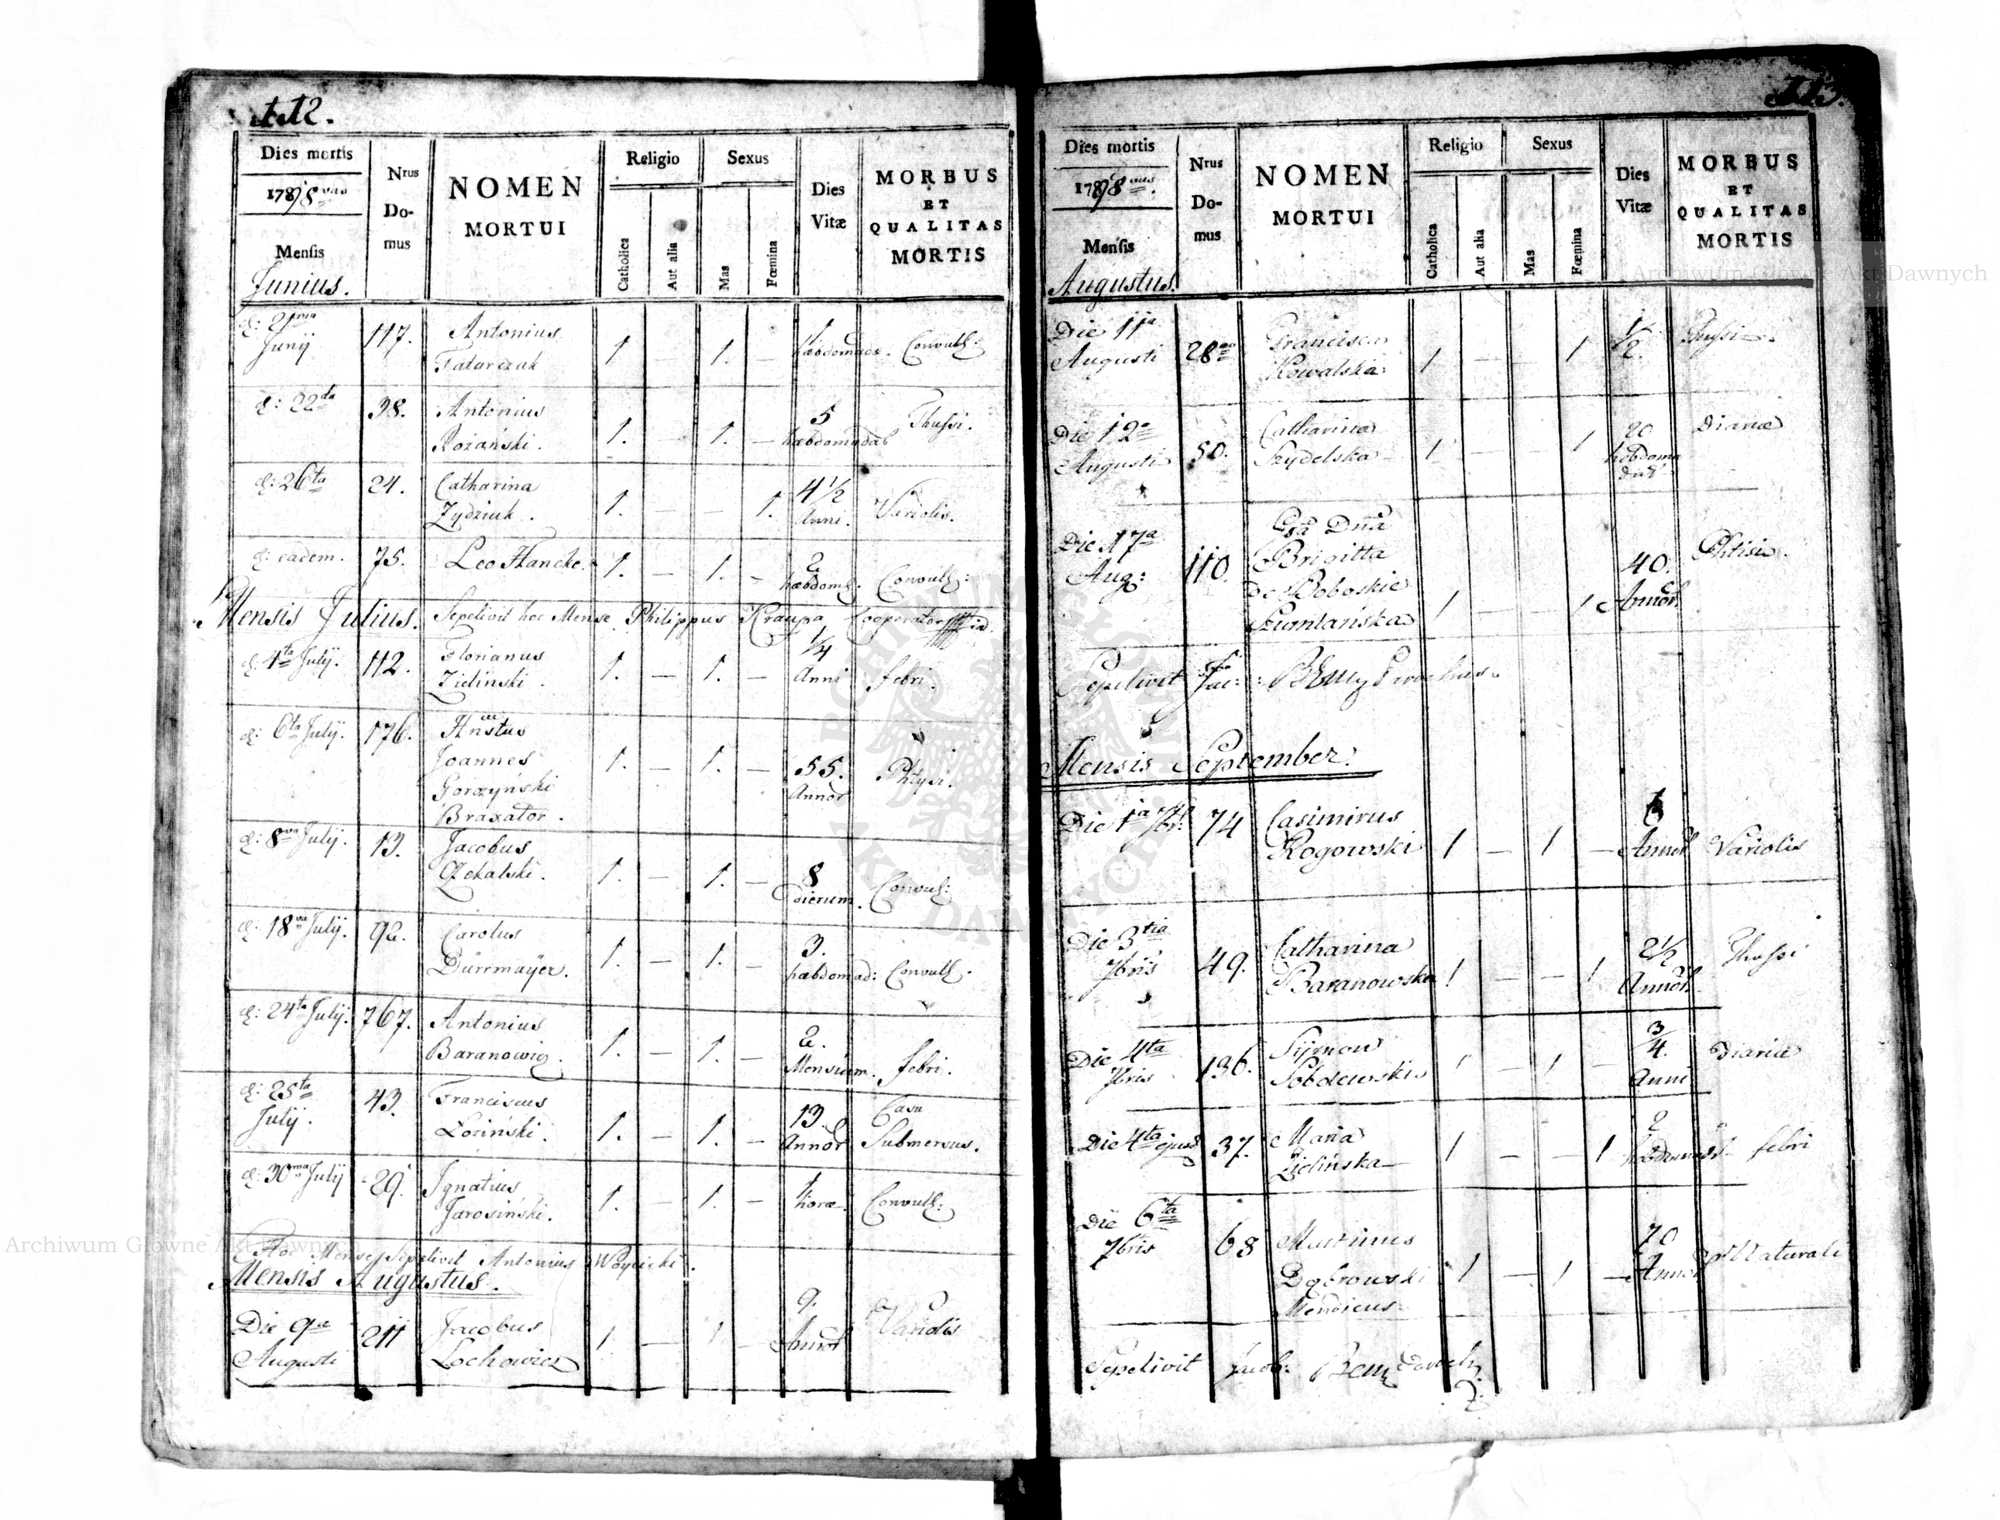 112.
Dies mortis
1798vus
Mensis
Junius.
Nrus
Do-
mus
NOMEN
MORTUI
Religio
Catholica
Aut alia
Sexus
Mas
Fœmina
Dies
Vitæ
MORBUS
ET
QUALITAS
MORTIS
d: 21ma Junij 117. Antonius 1. 1. — 1 hæbdomadæ. Convuls:
Tatarczak
d: 22da 38. Antonius 1. 1. — 5 hæbdomadas Thussi.
Rożański.
d: 26ta 24. Catharina 1. — — 1. 4 1/2 Anni. Variolis.
Zydziuk.
d: eadem. 75. Leo Hancke. 1. — 1. — 2 hæbdom: Convuls:
Mensis Julius. Sepelivit hoc Mense Philippus Kraupa Cooperator
d: 4ta Julij. 112. Florianus 1. — 1. — 1/4 Anni febri.
Zieliński.
d: 6ta Julij. 176. Hnstus 1. — 1. — 55. Annor Phtysi.
Joannes
Gorzyński
Braxator.
d: 8va Julij. 13. Jacobus 1. — 1. — 8 Dierum. Convuls:
Czekalski.
d: 18va Julij. 92. Carolus 1. — 1. — 3. hæbdomad: Convuls.
Dürrmaÿer.
d: 24ta Julij. 767. Antonius 1. — 1. — 2. Mensium. febri.
Baranowig.
d: 25ta Julij. 43. Franciscus 1. — 1. — 13. Annor Casu
Łoziński. Submersus.
d: 30ma Julij 29. Ignatius 1. — 1. — 1 horæ Convuls:
Jarosiński.
Hoc Mense Sepelivit Antonius Woycicki.
Mensis Augustus.
Die 9na Augusti 211 Jacobus 1. — 1 — 9. Annor Variolis
Lochowicz
113.
Dies mortis
1798vus.
Mensis
Augustus.
Nrus
Do-
mus
NOMEN
MORTUI
Religio
Catholica
Aut alia
Sexus
Mas
Fœmina
Dies
Vitæ
MORBUS
ET
QUALITAS
MORTIS
Die 11a Augusti 28 Francisca 1 — — 1 1/2. Thussi.
Kowalska
Die 12a Augusti 50. Catharina 1 — — 1 20 hebdoma Diaria
Szydelska
Die 17a Aug: 110. Gsa Dna 1 — — 1 40. Annor. Phtisi.
Brigitta
De Boboskie
Szumlańska
Sepelivit Jac:
Mensis September.
Die 1a 7br: 74 Casimirus 1 — 1 — Annor Variolis
Rogowski
Die 3tia 7bris 49. Catharina 1 — — 1 2 1/2 Annor. Thussi
Baranowska
Die 4ta 7bris 136. Sijmon 1 — 1 — 3/4. Anni Diaria
Sobolewski
Die 4ta ejusd 37. Maria 1 — — 1 2 febri
Zielińska
Die 6ta 7bris 68 Martinus 1 — 1 — 70 Annor Naturali
Dąbrowski
Mendicus
Sepelivit Jacob. Bem
Archiwum Główne Akt Dawnych
Archiwum Główne Akt Dawnych
ARCHIWUM GŁÓWNE AKT DAWNYCH